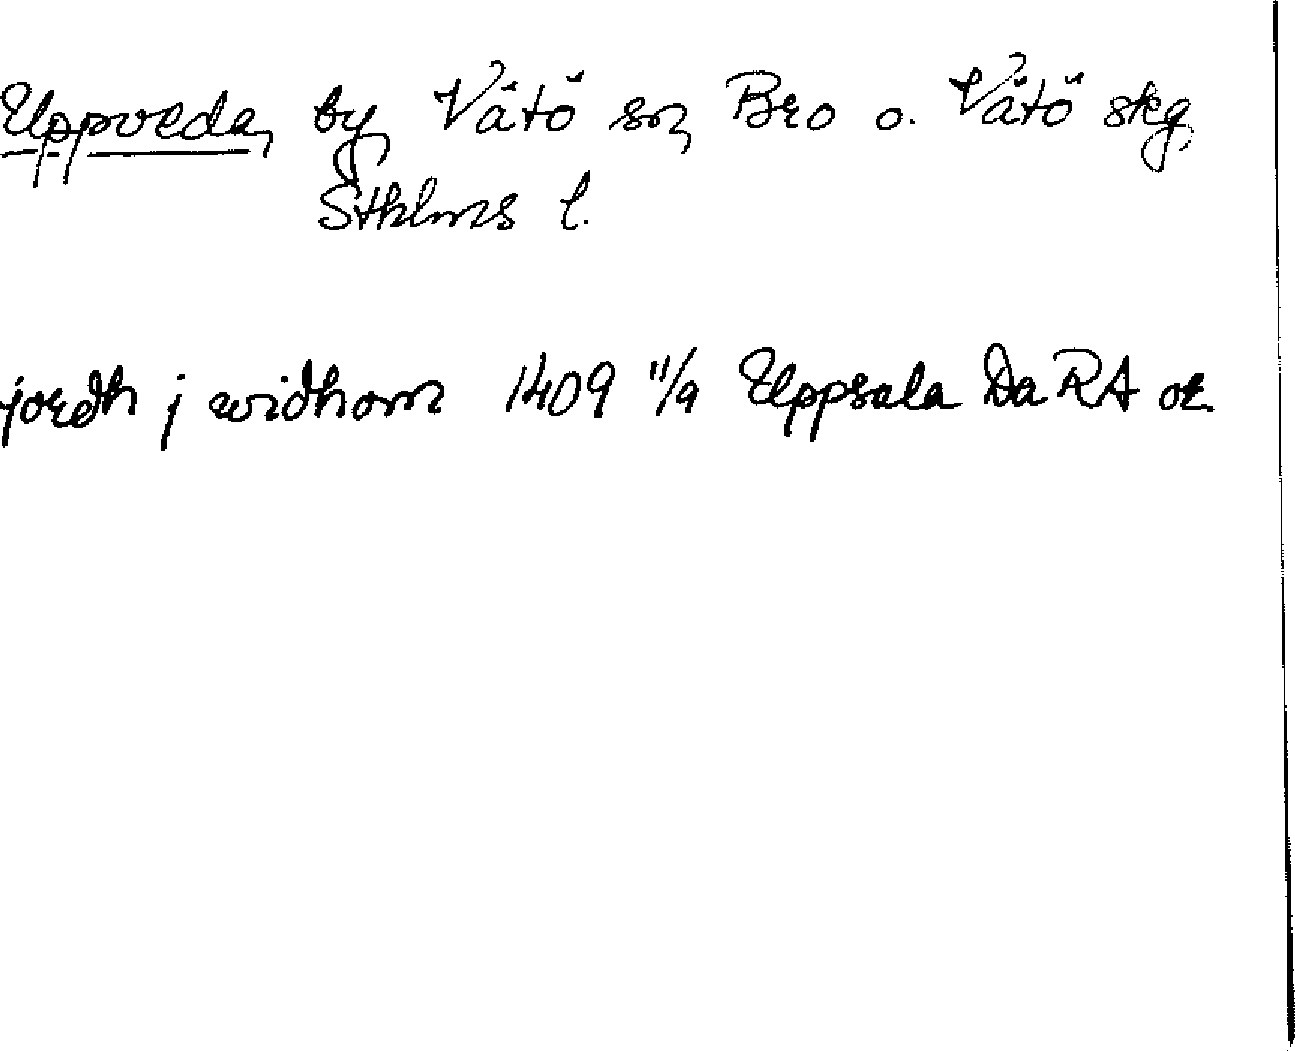 Uppveda, by, Vätö sn, Bro o. Vätö skg,
Sthlms l.
jordh j widhom 1409 11/9 Uppsala Da RA or.